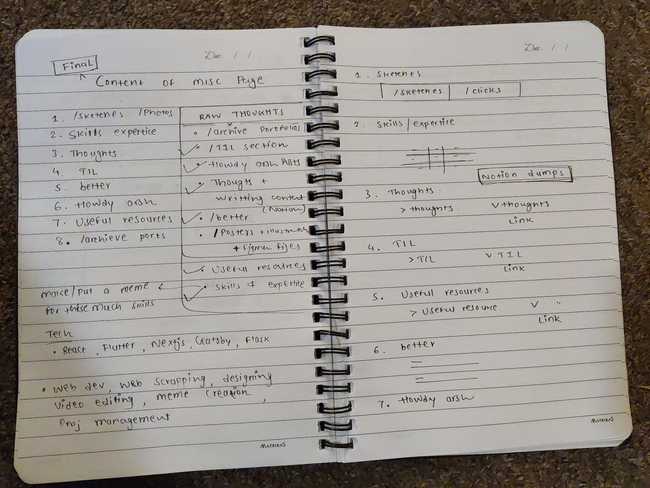 Final
Content of misc Page
1. /sketches /Photos
2. Skills expertice
3. Thoughts
4. TIL
5. better
6. Howdy arsh
7. Useful resources
8. /archieve ports
RAW THOUGHTS
• /archive portfolios
• /TIL section
• Howdy arsh
• Thoughts +
writting content
(Notion)
• /better
• /Posters +
+ figma files
• Useful resources
• Skills & expertise
make/put a meme
for these much skills
Tech
• React, Flutter, Nextjs, Gatsby, Flask
• Web dev, Web Scrapping, designing
Video editing, meme creation,
Proj management
Date / /
1. Sketches
/sketches /clicks
2. Skills/expertice
Notion dumps
3. Thoughts
> thoughts v thoughts
Link
4. TIL
> TIL v TIL
Link
5. Useful resources
> Useful resource v "
Link
6. better
7. Howdy arsh